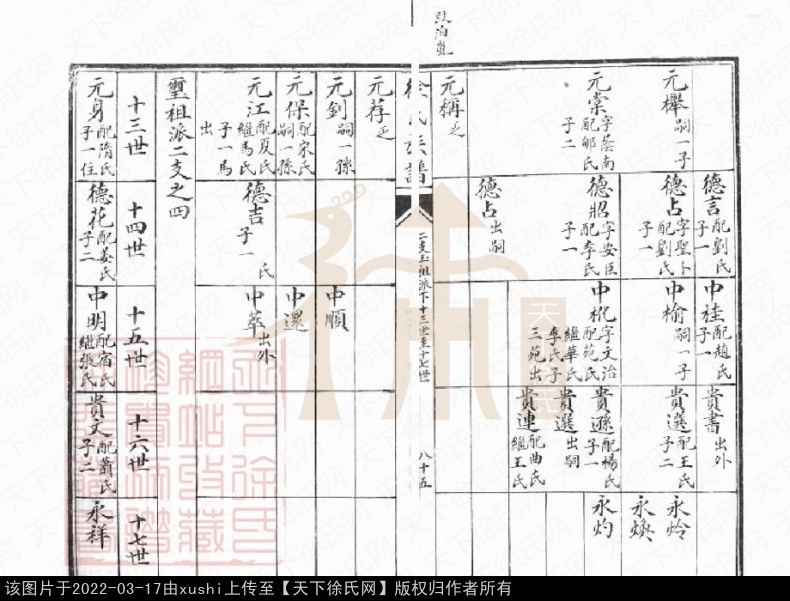 元舉 嗣一子
元棠 字蔭南 配郇氏 子二
元稱 乏
德言 配劉氏 子一
德占 字聖卜 配劉氏 子一
德昭 字安臣 配李氏 子一
德占 出嗣
中桂 配趙氏 子一
中榆 嗣一子
中樅 字文治 配苑氏 繼華氏 李氏子三苑出
貴書 出外
貴選 配王氏 子二
貴遜 配楊氏 子一
貴選 出嗣
貴連 配曲氏 繼王氏
永炩
永燠
永灼
徐氏族譜
二支玉祖派下十三世至十七世
八十五
元荐 乏
元釗 嗣一孫
元保 配宋氏 嗣一孫
元江 配夏氏 繼馬氏 子一馬出
德吉 子一 氏
中順
中還
中萃 出外
璽祖派二支之四
十三世
十四世
十五世
十六世
十七世
元身 配隋氏 子一住
德花 配姜氏 子二
中明 配宿氏 繼張氏
貴文 配蕭氏 子二
永祥
天下徐氏网
该图片于2022-03-17由xushi上传至【天下徐氏网】版权归作者所有